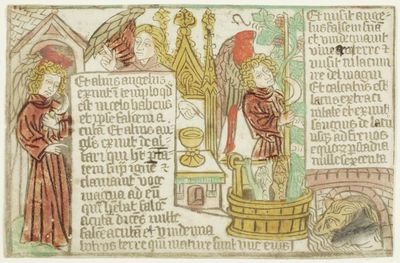 Et alius angelus
exivit templo qd
est in celo habens
et ipse falcem a
cutā Et alius an
gls exivit de al
tari qui
tatem sup ignē et
clamavit voce
magna ad eū
qui falcē
acutā dicēs mitte
falcē acutā et vindemia
botros terre mature sunt uve eius
Et misit ange
lus falcem suā
et vindemiavit
vineā terre et
misit ī lacum
ire dei magnū
Et calcatus est
lacus extra ci
vitatē et exivit
sanguis de lacu
usqz ad frenos
equorū p stadia
mille sexcenta